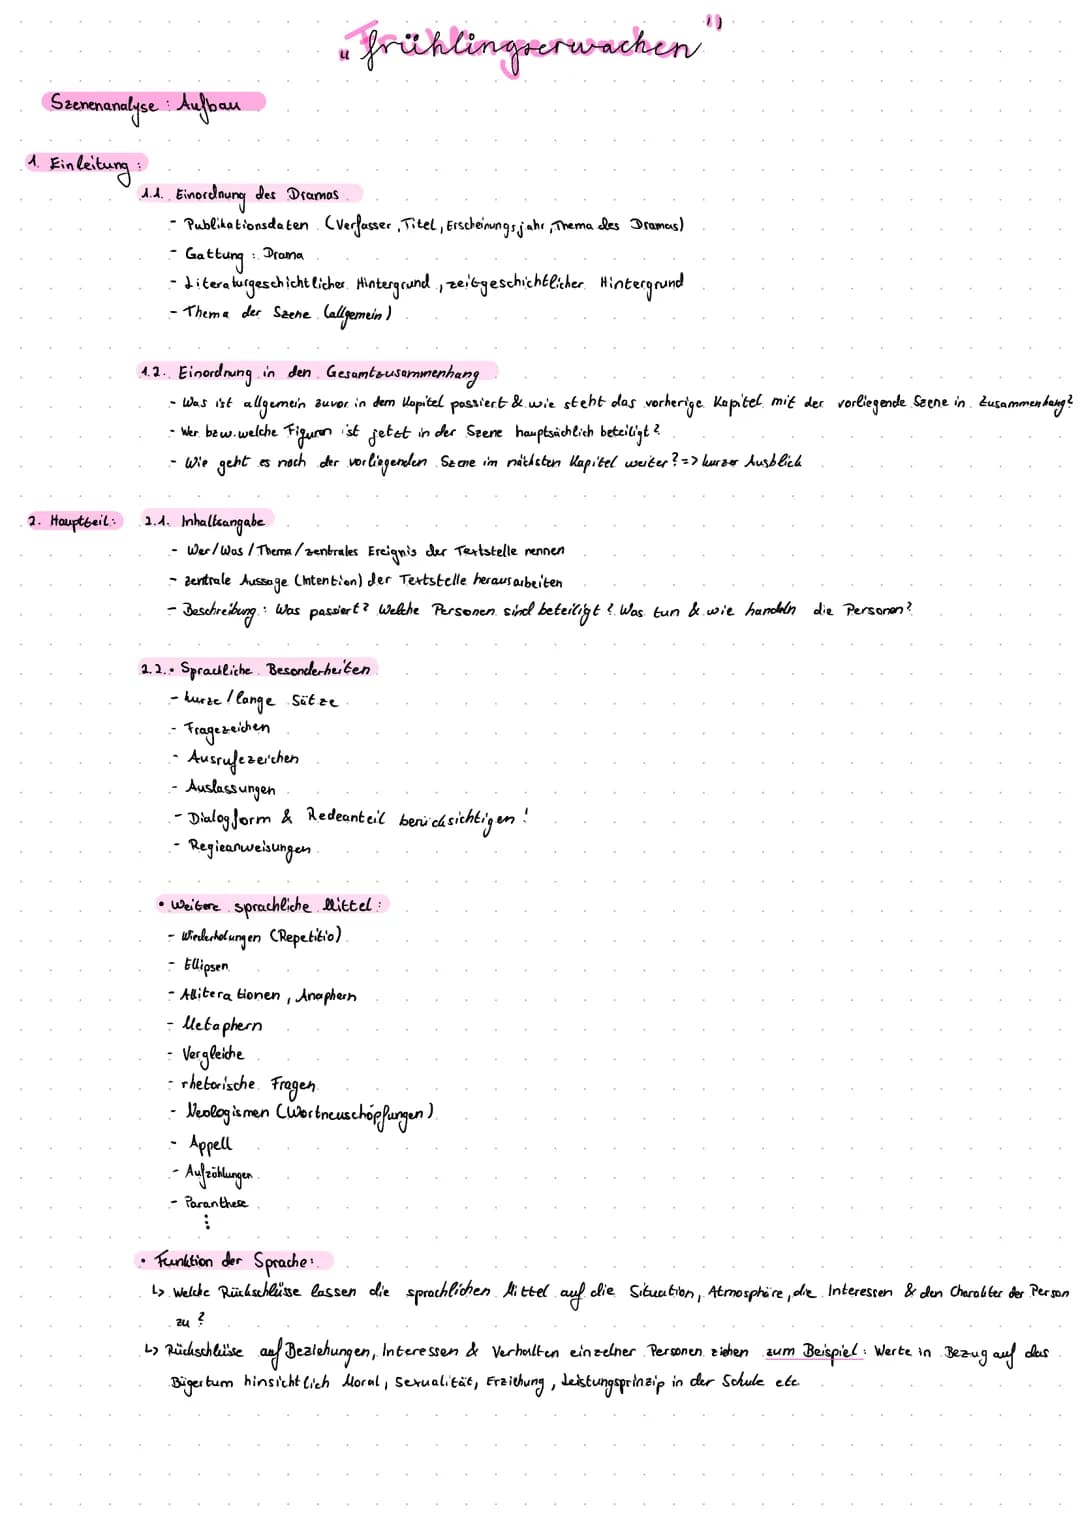 „Frühlingserwachen"
Szenenanalyse : Aufbau
1. Einleitung :
1.1. Einordnung des Dramas
- Publikationsdaten (Verfasser, Titel, Erscheinungsjahr, Thema des Dramas)
- Gattung : Drama
- Literaturgeschichtlicher Hintergrund, zeitgeschichtlicher Hintergrund
- Thema der Szene (allgemein)
1.2. Einordnung in den Gesamtzusammenhang
- Was ist allgemein zuvor in dem Kapitel passiert & wie steht das vorherige Kapitel mit der vorliegende Szene in Zusammenhang?
- Wer bzw. welche Figuren ist jetzt in der Szene hauptsächlich beteiligt?
- Wie geht es nach der vorliegenden Szene im nächsten Kapitel weiter? => kurzer Ausblick
2. Hauptteil: 2.1. Inhaltsangabe
- Wer/Was/Thema/zentrales Ereignis der Textstelle nennen
- zentrale Aussage (Intention) der Textstelle herausarbeiten
- Beschreibung: Was passiert? Welche Personen sind beteiligt? Was tun & wie handeln die Personen?
2.2. • Sprachliche Besonderheiten
- kurze/lange Sätze
- Fragezeichen
- Ausrufezeichen
- Auslassungen
- Dialogform & Redeanteil berücksichtigen!
- Regieanweisungen
• Weitere sprachliche Mittel :
- Wiederholungen (Repetitio)
- Ellipsen
- Alliterationen, Anaphern
- Metaphern
- Vergleiche
- rhetorische Fragen
- Neologismen (Wortneuschöpfungen)
- Appell
- Aufzählungen
- Paranthese
⋮
• Funktion der Sprache:
↳ Welche Rückschlüsse lassen die sprachlichen Mittel auf die Situation, Atmosphäre, die Interessen & den Charakter der Person
zu?
↳ Rückschlüsse auf Beziehungen, Interessen & Verhalten einzelner Personen ziehen zum Beispiel: Werte in Bezug auf das
Bügertum hinsichtlich Moral, Sexualität, Erziehung, Leistungsprinzip in der Schule etc.